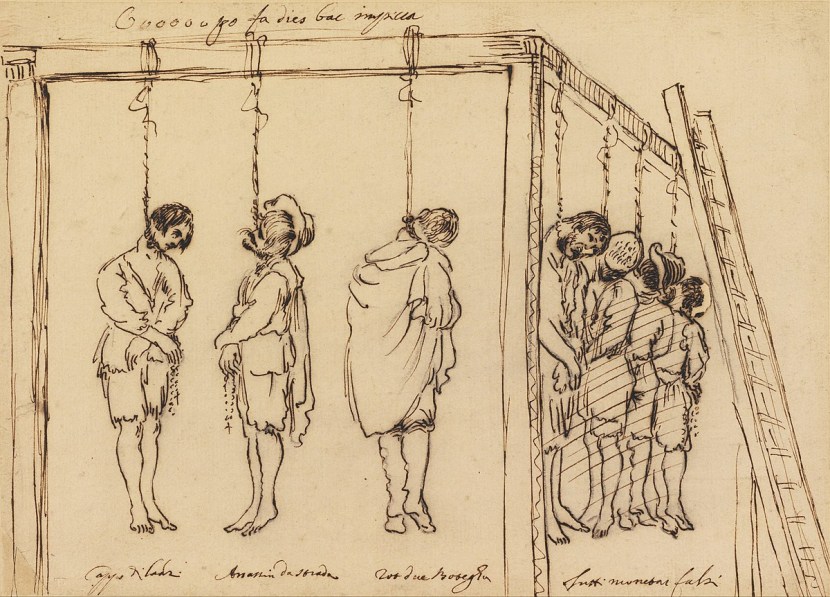 po fa dies impicca
Cappo di ladri
Assassin da strada
rot due Boteghe
tutti monetar falsi